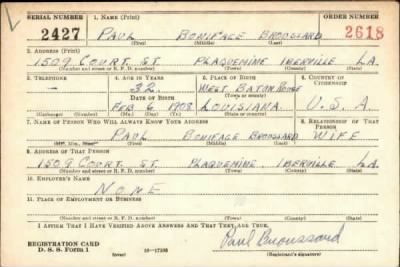 SERIAL NUMBER 1. NAME (Print) ORDER NUMBER
2427 PAUL BONIFACE BROUSSARD 2618
(First) (Middle) (Last)
2. ADDRESS (Print)
1509 COURT. ST. PLAQUEMINE IBERVILLE LA.
(Number and street or R. F. D. number) (Town) (County) (State)
3. TELEPHONE 4. AGE IN YEARS 5. PLACE OF BIRTH 6. COUNTRY OF CITIZENSHIP
— 32 WEST BATON ROUGE
DATE OF BIRTH (Town or county)
FEB 6 1908 LOUISIANA. U. S. A
(Exchange) (Number) (Mo.) (Day) (Yr.) (State or country)
7. NAME OF PERSON WHO WILL ALWAYS KNOW YOUR ADDRESS 8. RELATIONSHIP OF THAT PERSON
PAUL BONIFACE BROUSSARD WIFE
(First) (Middle) (Last)
9. ADDRESS OF THAT PERSON
1509 COURT. ST. PLAQUEMINE, IBERVILLE LA.
(Number and street or R. F. D. number) (Town) (County) (State)
10. EMPLOYER'S NAME
NONE
11. PLACE OF EMPLOYMENT OR BUSINESS
(Number and street or R. F. D. number) (Town) (County) (State)
I AFFIRM THAT I HAVE VERIFIED ABOVE ANSWERS AND THAT THEY ARE TRUE.
REGISTRATION CARD
D. S. S. Form 1 (over) Paul Broussard
(Registrant's signature)